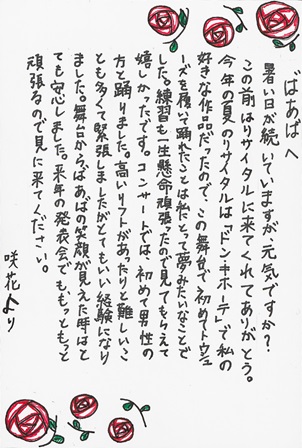 ばあばへ
暑い日が続いていますが、元気ですか?
この前はリサイタルに来てくれてありがとう。
今年の夏のリサイタルは「ドンキホーテ」で私の
好きな作品だったので、この舞台で初めてトウシュ
ーズを履いて踊れたことは私にとって夢みたいなことで
した。練習も一生懸命頑張ったので見てもらえて
嬉しかったです。コンサートでは、初めて男性の
方と踊りました。高いリフトがあったりと難しいこ
とも多くて緊張しましたがとてもいい経験になり
ました。舞台からばあばの笑顔が見えた時はと
ても安心しました。来年の発表会でももっともっと
頑張るので見に来てください。
咲花より